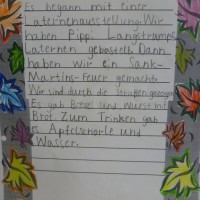 Es begann mit einer
Laternenausstellung. Wir
haben Pippi Langstrumpf
Laternen gebastelt. Dann
haben wir ein Sank-
Martins-Feuer gemacht.
Wir sind durch die Straßen gezogen.
Es gab Brezel und Wurst mit
Brot. Zum Trinken gab
es Apfelschorle und
Wasser.